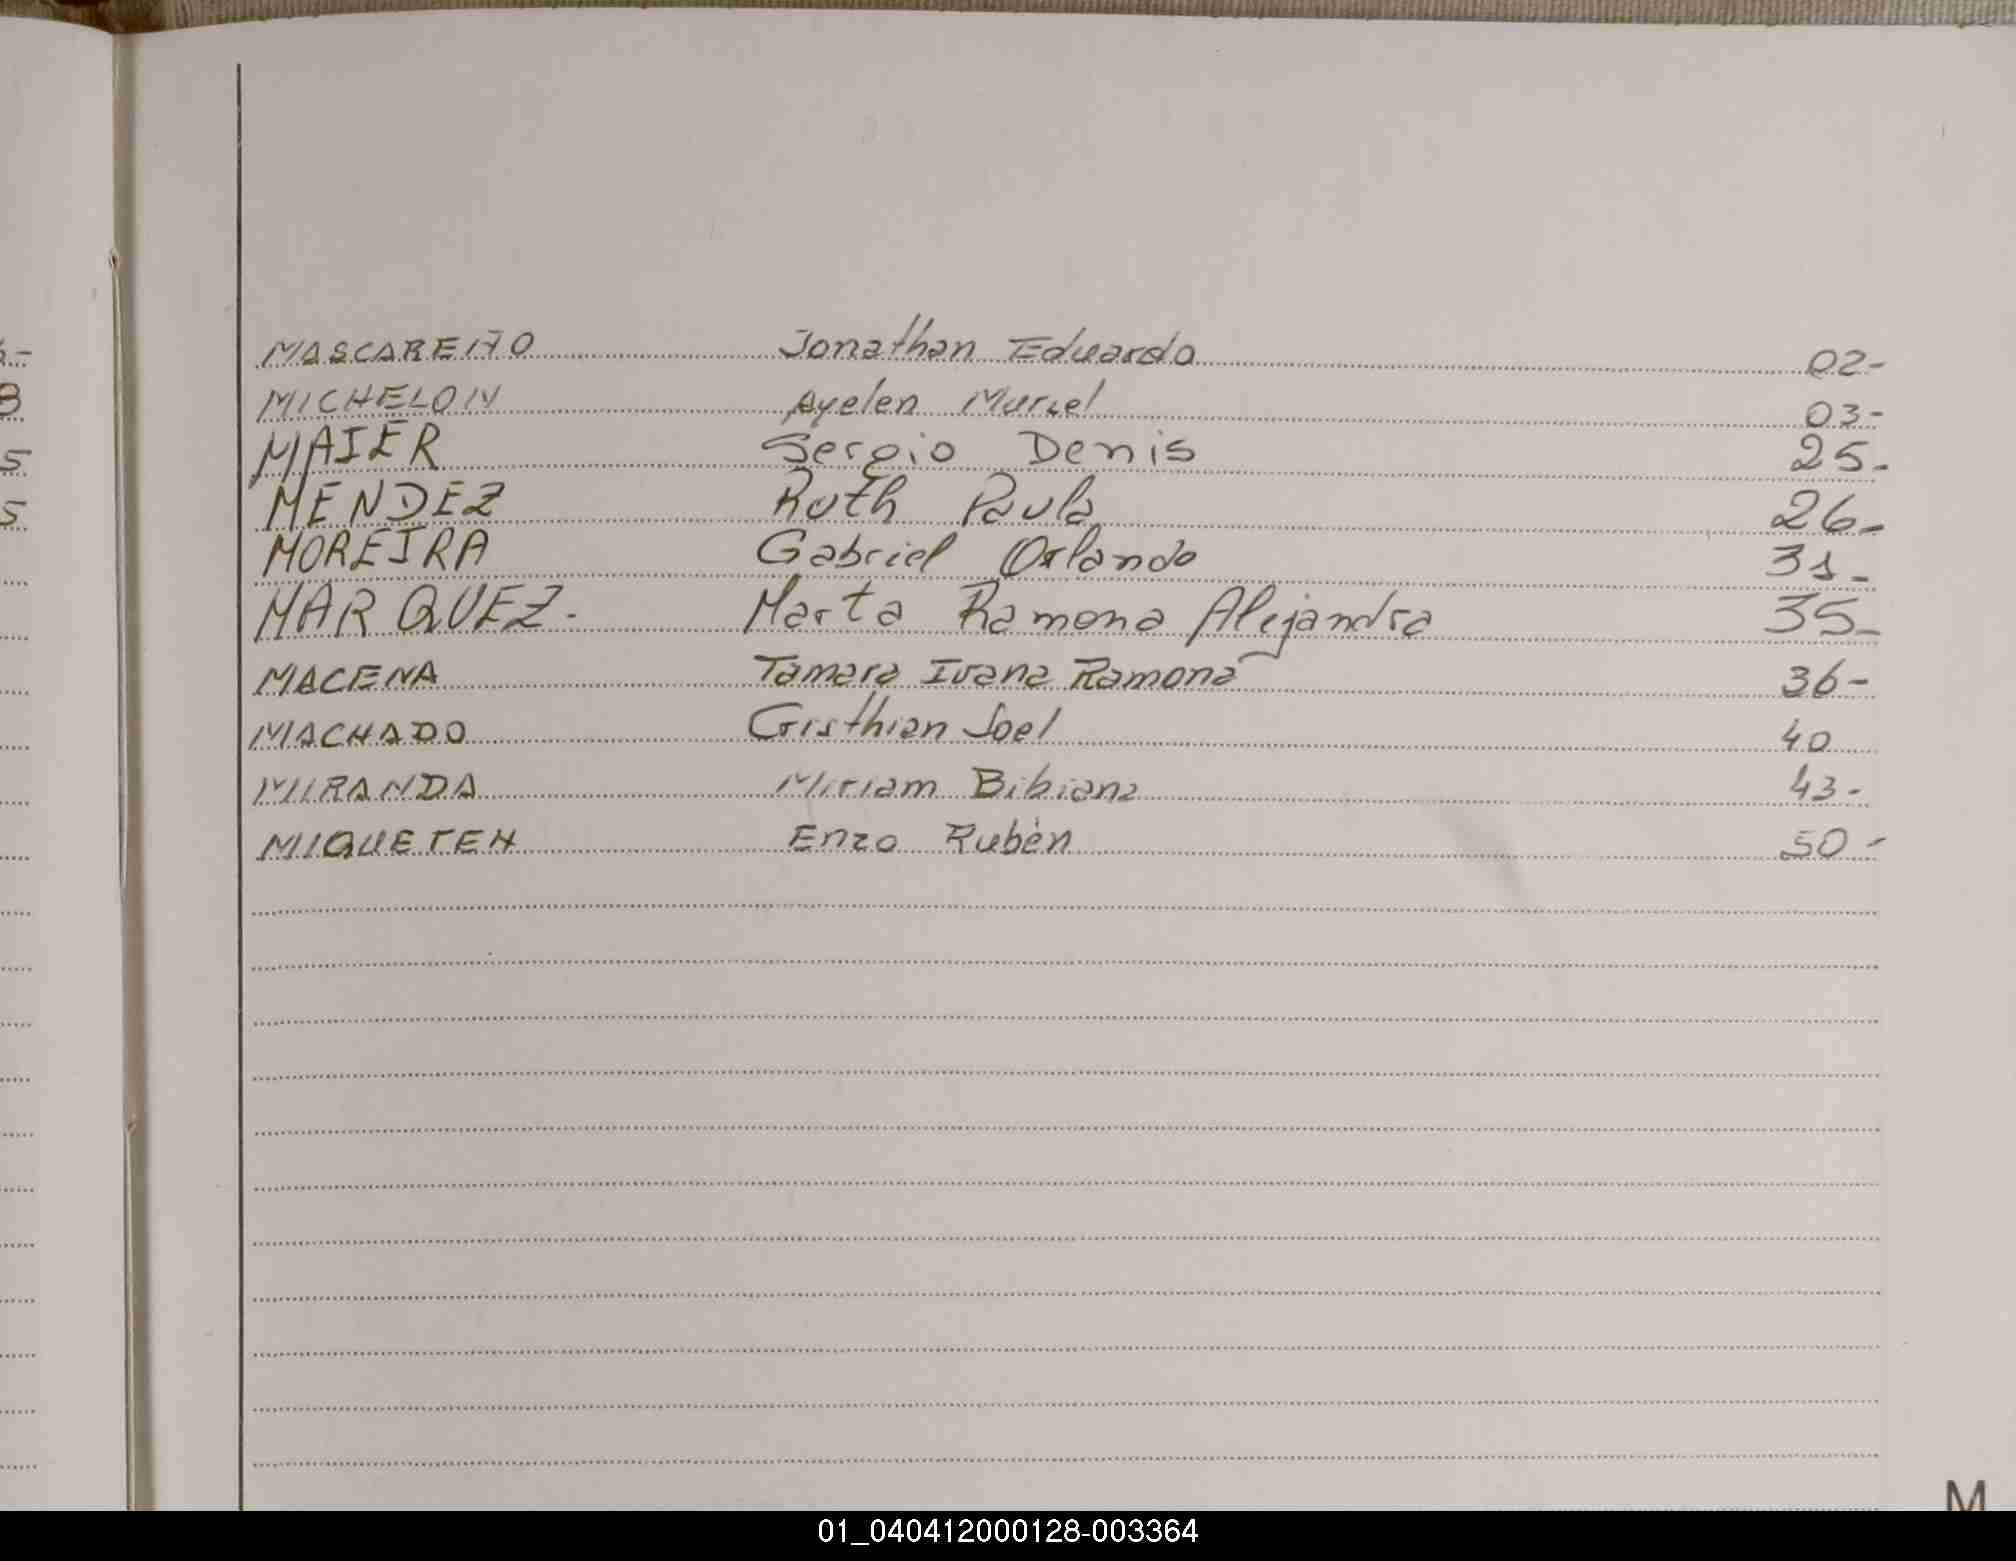 MASCAREÑO Jonathan Eduardo 02-
MICHELON Ayelen Muriel 03-
MAIER Sergio Denis 25-
MENDEZ Ruth Paula 26-
MOREIRA Gabriel Orlando 31-
MARQUEZ- Marta Ramona Alejandra 35-
MACENA Tamara Ivana Ramona 36-
MACHADO Cristhian Joel 40
MIRANDA Miriam Bibiana 43-
Enzo Rubén 50-
M
01_040412000128-003364